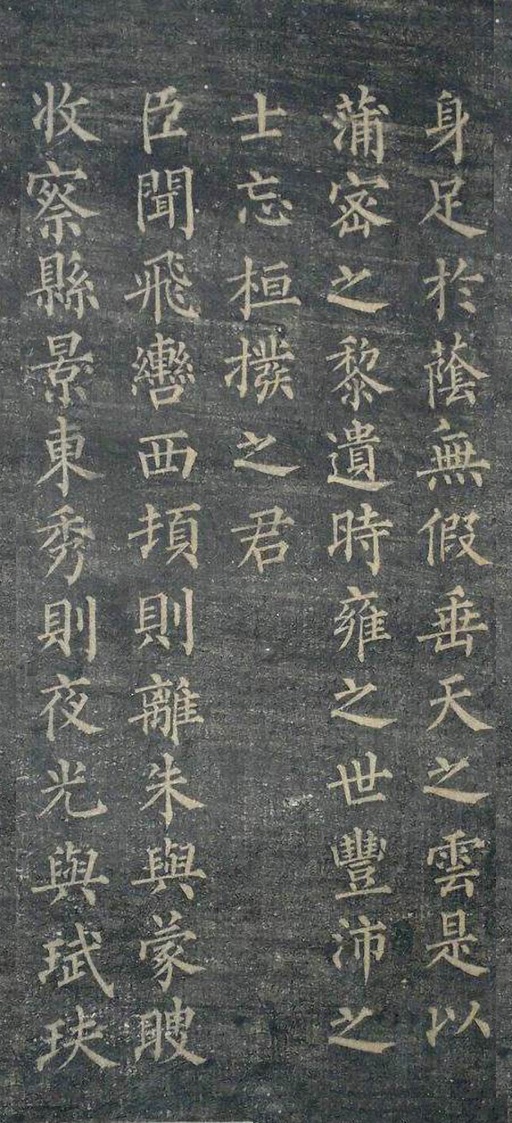 身足於蔭無假垂天之雲是以
蒲密之黎遺時雍之世豐沛之
士忘桓撥之君
臣聞飛轡西頓則離朱與蒙瞍
收察縣景東秀則夜光與珷玞